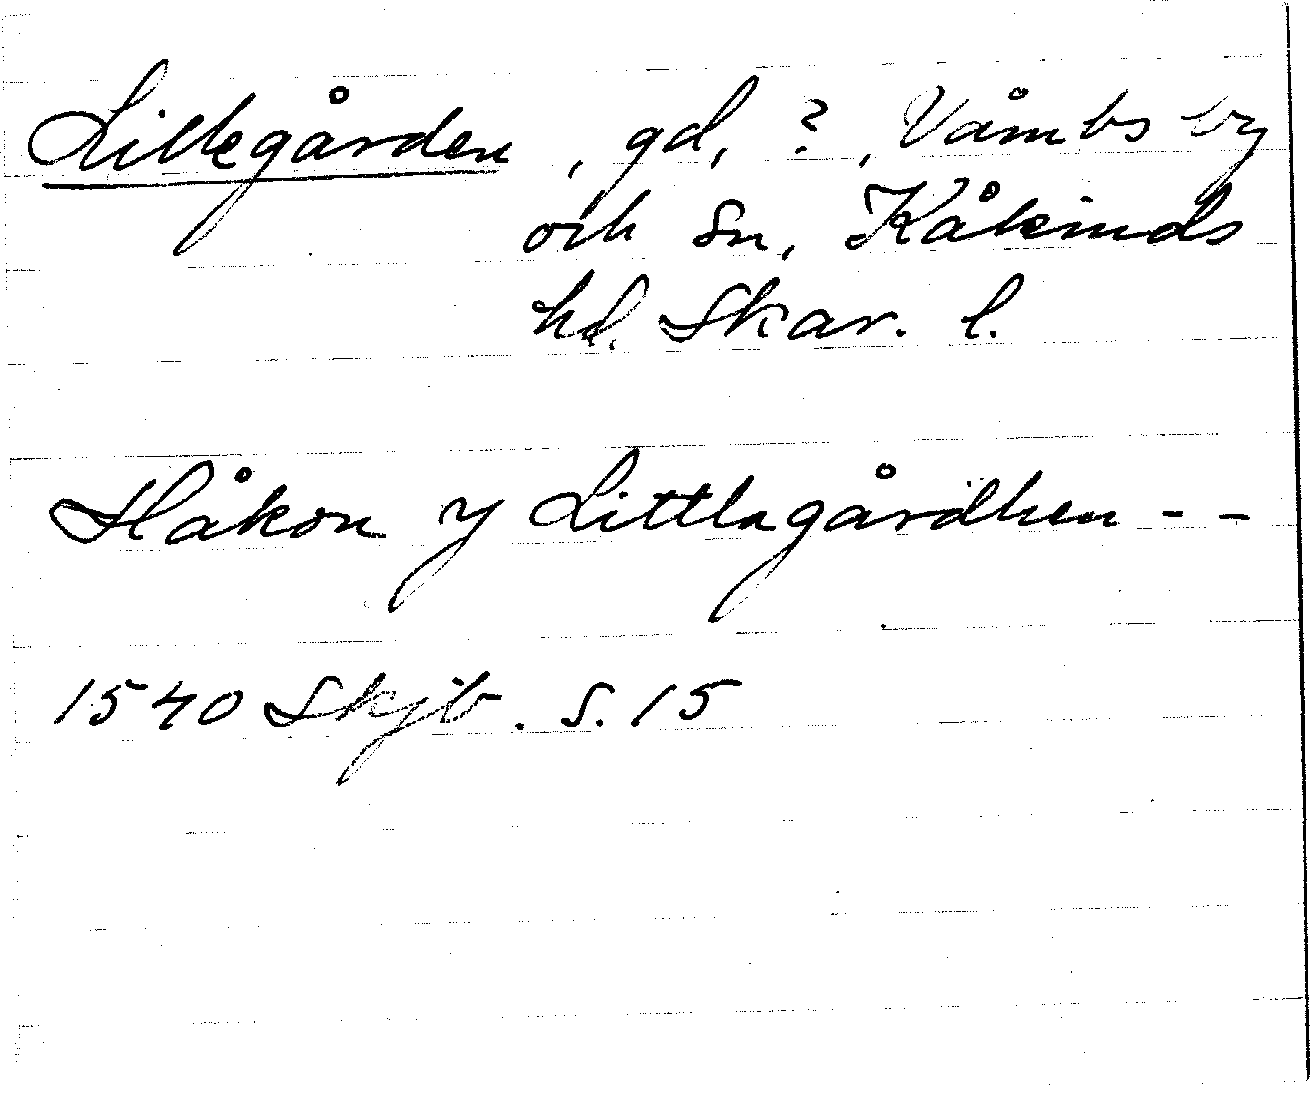 Lillegården, gd, ?, Våmbs by
och sn, Kåkinds
hd. Skar. l.
Håkon y Littlagårdhen - -
1540 Skjb. S. 15